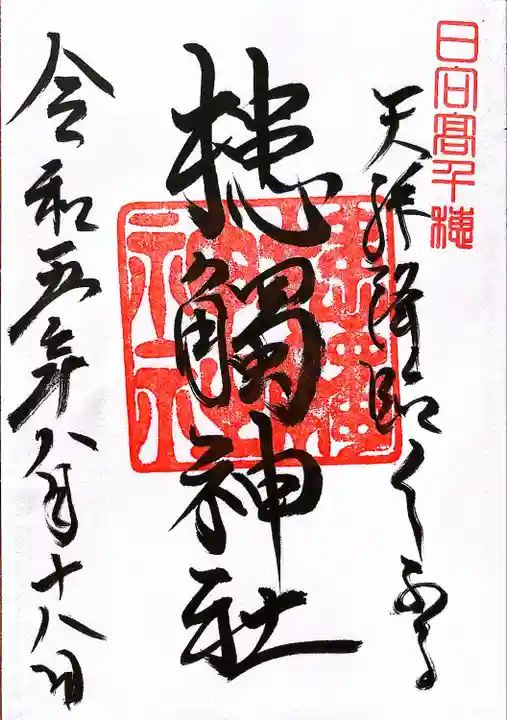 日向高千穂
天孫降臨くしふる
槵觸神社
令和五年八月十八日